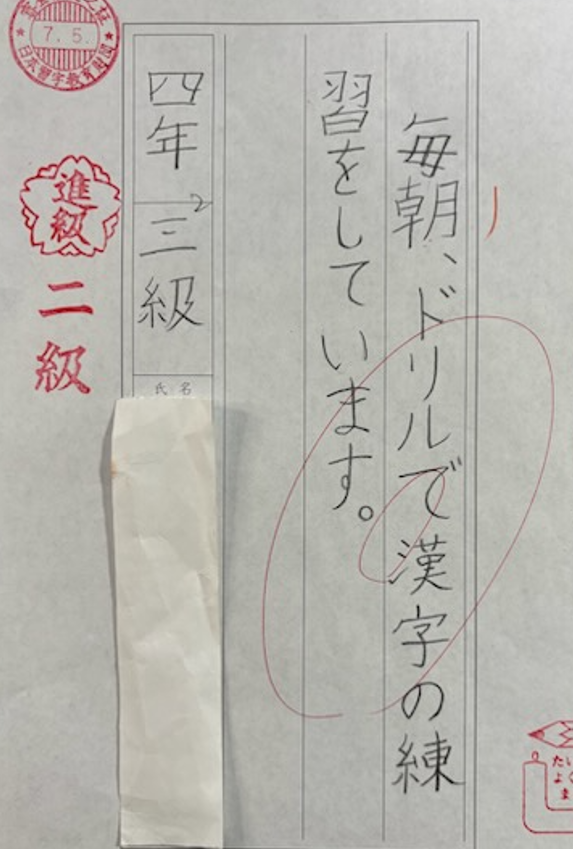 毎朝、ドリルで漢字の練
習をしています。
四年 三級
2
氏名
進級
二級
7.5.
日本習字教育財団